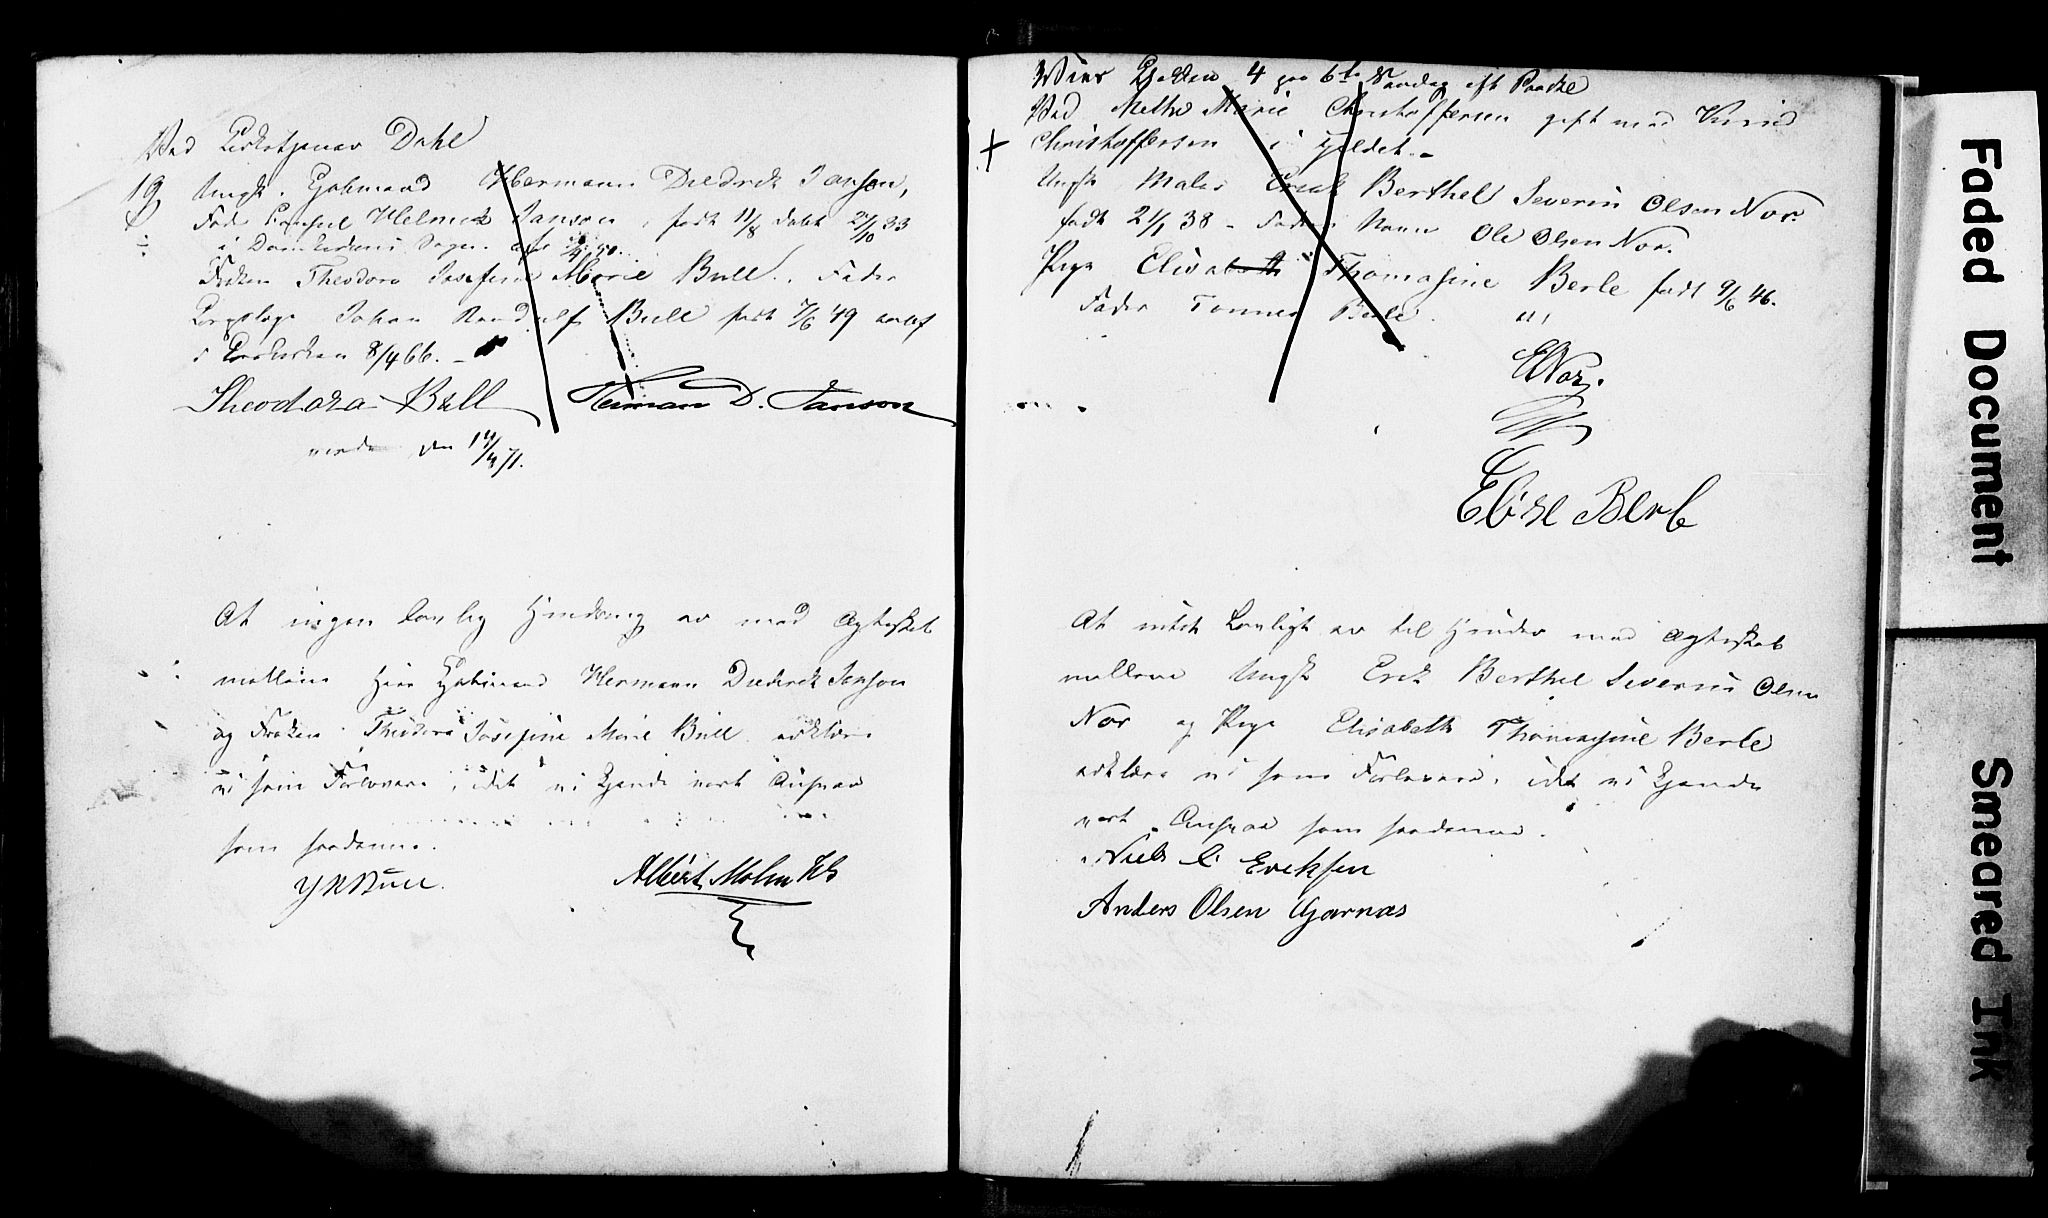 Ved Kirketjener Dahl
19 Ungk. Kjøbmand Hermann Diedrich Janson,
Fader Consul Helmich Janson, født 11/8 døbt 21/10 33
i Domkirkens Sogn.
Frøken Theodora Josefine Marie Bull. Fader
Johan Randulf Bull født 7/6 49
i Korskirken 8/4 66.
Theodora Bull Herman D. Janson
den 14/4 71.
At ingen lovlig Hindring er mod Ægteskab
mellem Herr Kjøbmand Hermann Diederich Janson
og Frøken Theodora Josefine Marie Bull erklære
vi som Forlovere, idet vi kjende vort Ansvar
som saadanne.
J R Bull. Albert Mohn
Vies Klokken 4 paa 6te Søndag eft Paaske
Ved Methe Marie Christoffersen gift med
+ Christoffersen i Gildet.
Ungk Maler Erick Berthel Severin Olsen Nor.
født 21/1 38 - Faders Navn Ole Olsen Nor.
Pige Elisabeth Thomasine Berle født 9/6 46.
Fader Tønnes Berle.
E Nor.
Elise Berle
At intet Lovligt er til Hinder mod Ægteskab
mellem Ungk Erick Berthel Severin Olsen
Nor og Pige Elisabeth Thomasine Berle
erklære vi som Forlovere, idet vi kjende
vort Ansvar som saadanne.
Niels C Ericksen
Anders Olsen Gjernæs
Faded Document
Smeared Ink